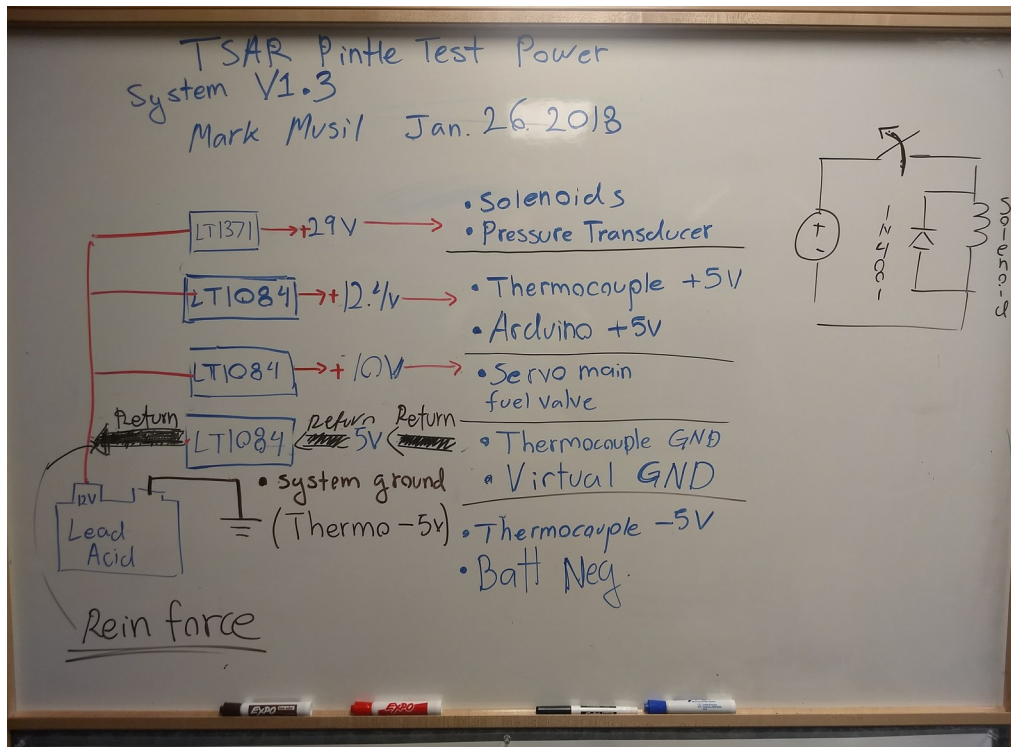 TSAR Pintle Test Power
System V1.3
Mark Musil Jan. 26 2018
LT1371 +29V • Solenoids
• Pressure Transducer
LT1084 +12.4v • Thermocouple +5V
• Arduino +5v
LT1084 +10V • Servo main
fuel valve
Return LT1084 Return 5V Return • Thermocouple GND
• Virtual GND
• system ground
(Thermo -5v)
• Thermocouple -5V
• Batt Neg.
12V
Lead
Acid
Rein force
+
-
1N4001
Solenoid
EXPO
EXPO